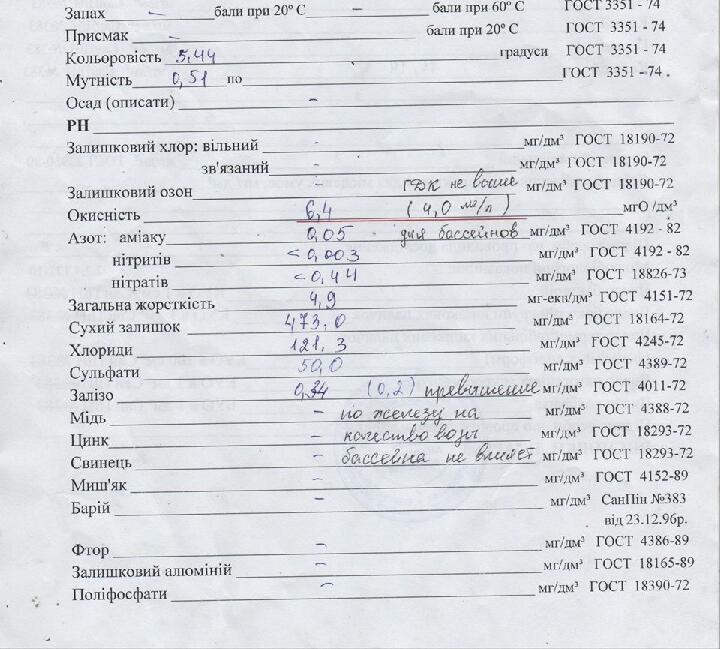 Запах – бали при 20° С – бали при 60° С ГОСТ 3351 - 74
Присмак – бали при 20° С ГОСТ 3351 - 74
Кольоровість 5,44 градуси ГОСТ 3351 - 74
Мутність 0,51 по ГОСТ 3351 - 74 .
Осад (описати) –
РН
Залишковий хлор: вільний – мг/дм³ ГОСТ 18190-72
зв'язаний – мг/дм³ ГОСТ 18190-72
Залишковий озон – ГДК не выше мг/дм³ ГОСТ 18190-72
Окисність 6,4 (4,0 мг/л) мгО /дм³
Азот: аміаку 0,05 для бассейнов мг/дм³ ГОСТ 4192 - 82
нітритів <0,003 мг/дм³ ГОСТ 4192 - 82
нітратів <0,44 мг/дм³ ГОСТ 18826-73
Загальна жорсткість 4,9 мг-екв/дм³ ГОСТ 4151-72
Сухий залишок 473,0 мг/дм³ ГОСТ 18164-72
Хлориди 121,3 мг/дм³ ГОСТ 4245-72
Сульфати 50,0 мг/дм³ ГОСТ 4389-72
Залізо (0,2) превышение мг/дм³ ГОСТ 4011-72
Мідь – по железу на мг/дм³ ГОСТ 4388-72
Цинк – качество воды мг/дм³ ГОСТ 18293-72
Свинець – бассейна не влияет мг/дм³ ГОСТ 18293-72
Миш'як – мг/дм³ ГОСТ 4152-89
Барій – мг/дм³ СанПін №383
від 23.12.96р.
Фтор – мг/дм³ ГОСТ 4386-89
Залишковий алюміній – мг/дм³ ГОСТ 18165-89
Поліфосфати – мг/дм³ ГОСТ 18390-72